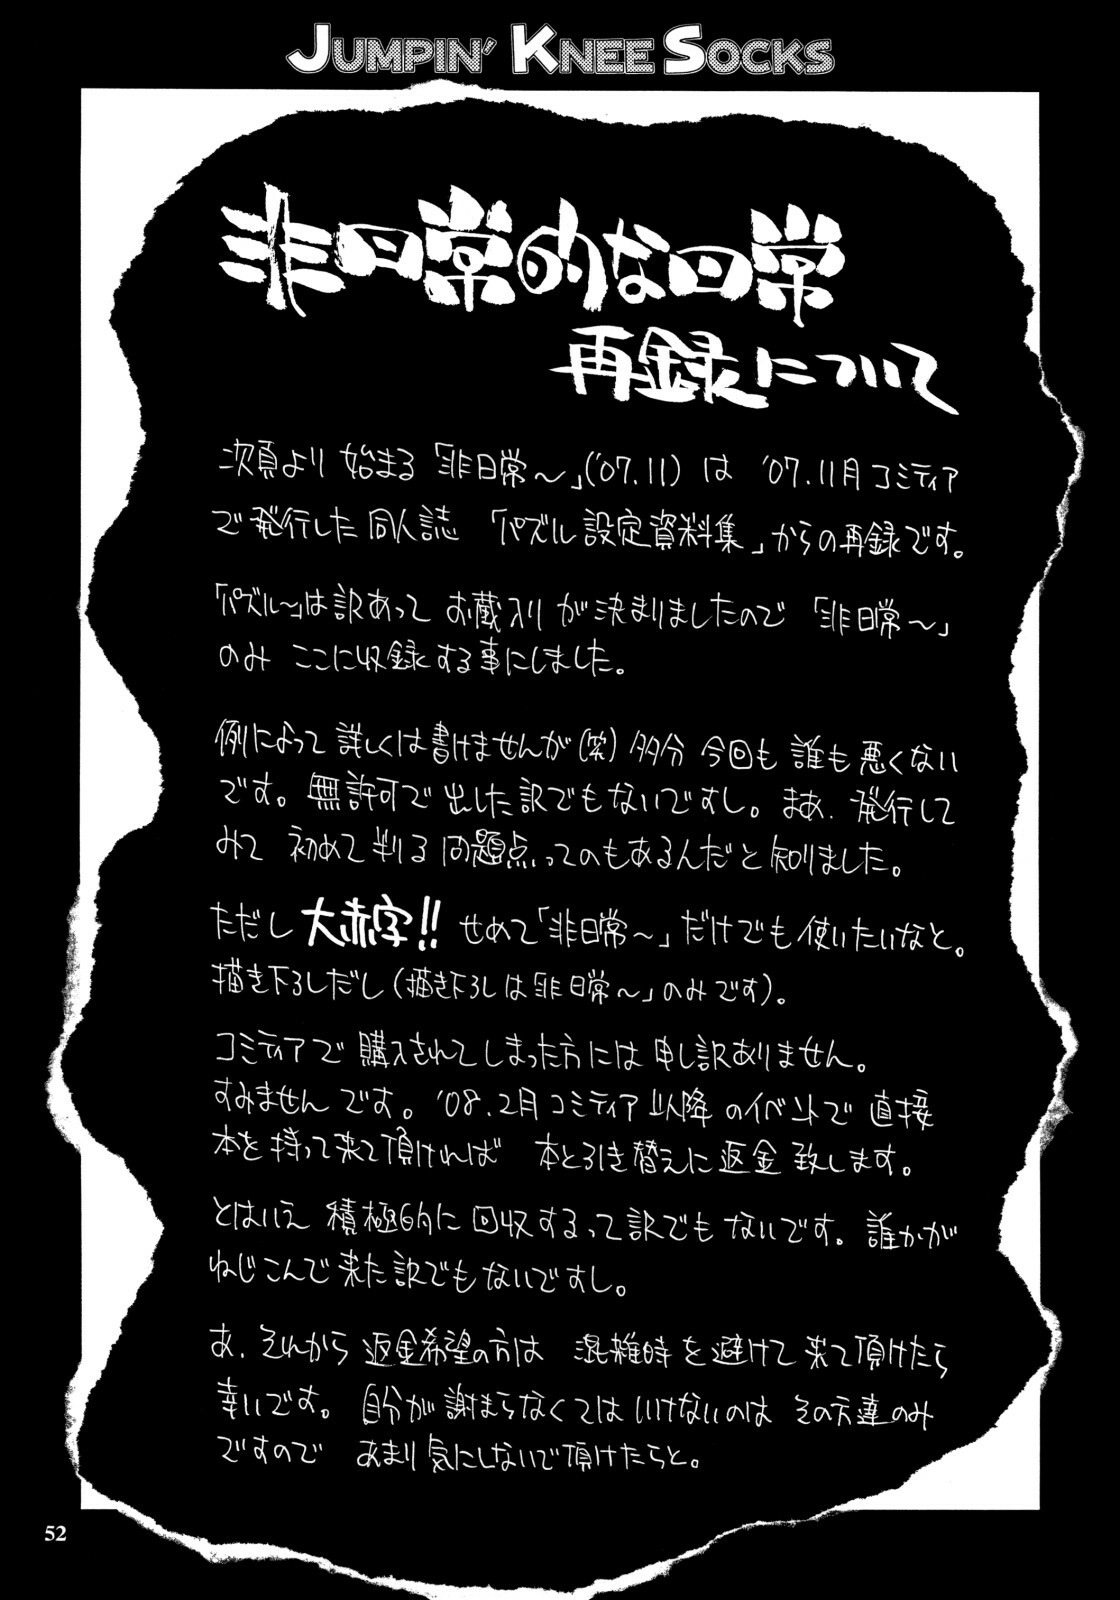 JUMPIN' KNEE SOCKS
非日常的な日常
再録について
次頁より 始まる「非日常〜」('07.11) は '07.11月 コミティア
で発行した 同人誌 「パズル 設定資料集」からの再録です。
「パズル〜」は訳あって お蔵入り が 決まりましたので 「非日常〜」
のみ ここに収録する事にしました。
例によって 詳しくは書けませんが (笑) 多分 今回も 誰も 悪くない
です。無許可で 出した 訳でもないですし。まあ、発行して
みて 初めて判る 問題点ってのもあるんだと 知りました。
ただし 大赤字!! せめて「非日常〜」だけでも 使いたいなと。
描き下ろしだし (描き下ろしは「非日常〜」のみです)。
コミティアで 購入されてしまった方には 申し訳ありません。
すみませんです。'08.2月 コミティア 以降 のイベントで 直接
本を 持って来て頂ければ 本と引き替えに 返金 致します。
とはいえ 積極的に 回収するって訳でも ないです。誰かが
ねじこんで来た訳でもないですし。
あ、それから 返金希望の方は 混雑時を避けて 来て頂けたら
幸いです。自分が謝まらなくてはいけないのは その方達のみ
ですので あまり気にしないで頂けたらと。
52